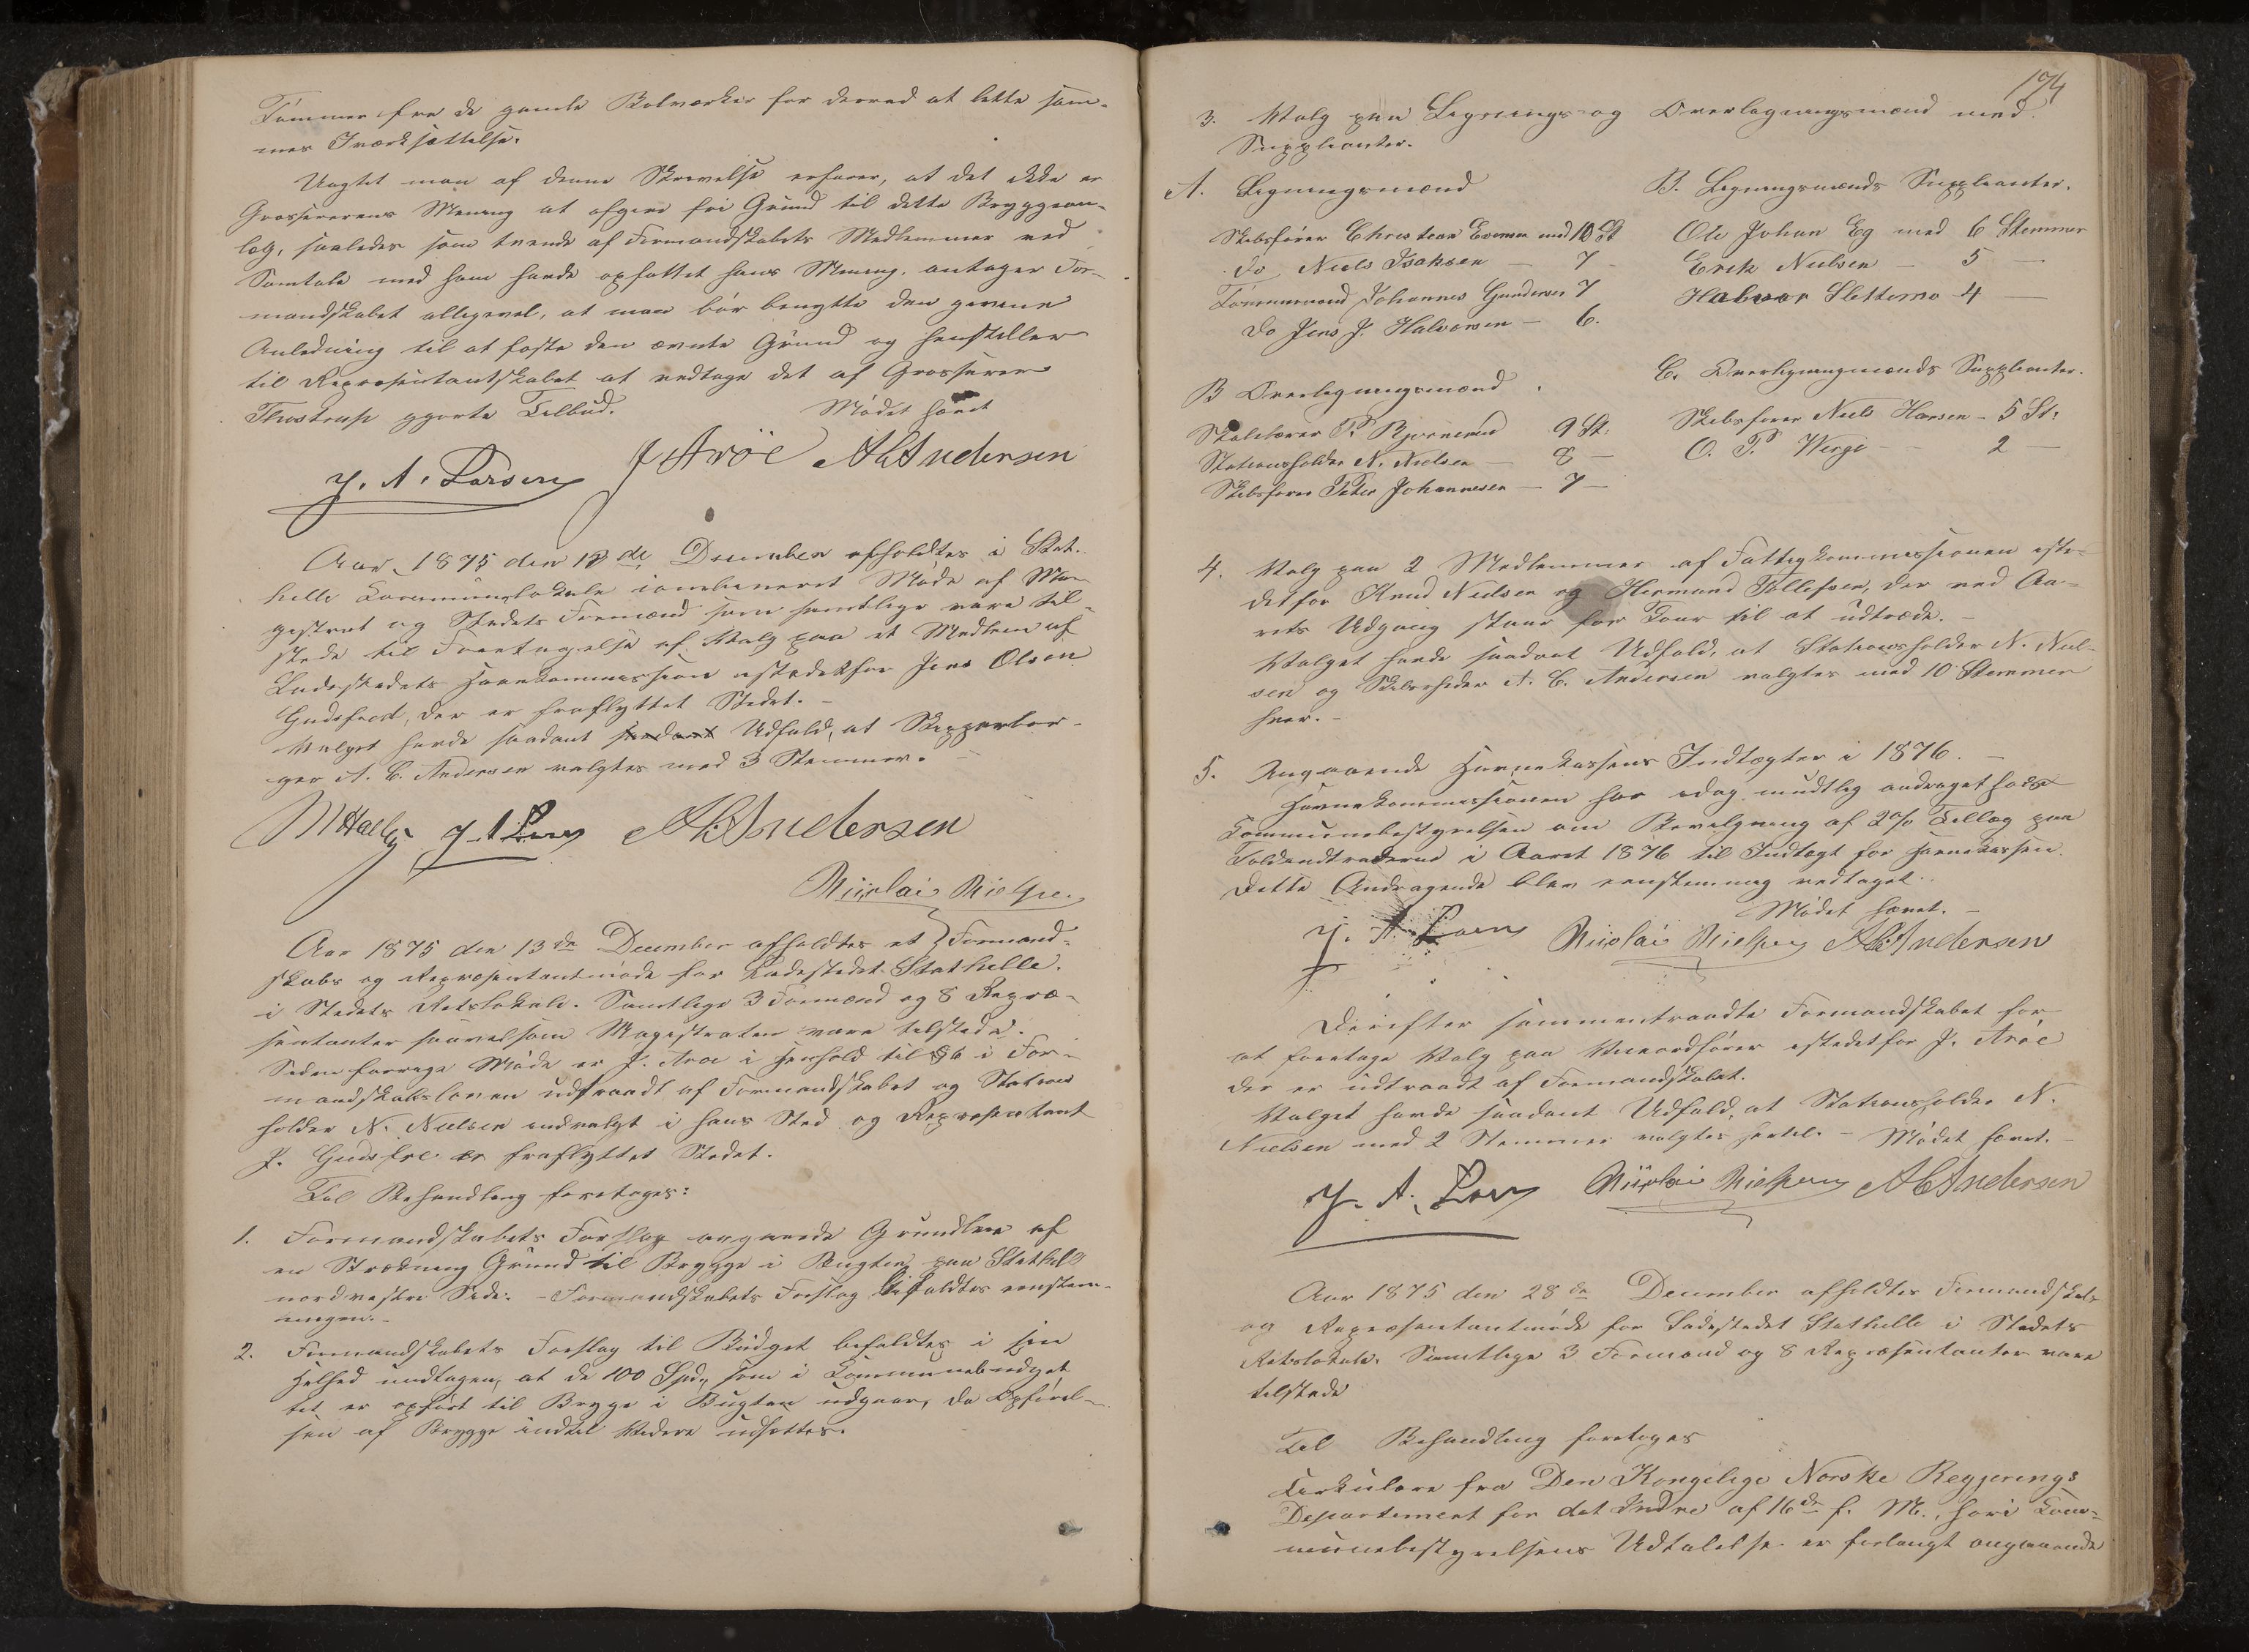 Tømmer fra de gamle Bolværker for derved at lette sam-
mes Iværksættelse.
Uagtet man af denne Skrivelse erfarer, at det ikke er
Grossererens Mening at afgive fri Grund til dette Bryggean-
læg, saaledes som tvende af Formandskabets Medlemmer ved
Samtale med ham havde opfattet hans Mening, antager For-
mandskabet alligevel, at man bør benytte den givene
Anledning til at fæste den ævnte Grund og henstiller
til Repræsentantskabet at vedtage det af Grosserer
Thostrup gjorte Tilbud.
Mødet hævet
J. A. Larsen J Arøe A C Andersen
Aar 1875 den 13de December afholdtes i Stat-
helle Kommunelokale kombineret Møde af Ma-
gistrat og Stedets Formænd som samtlige vare til-
stede til Foretagelse af Valg paa et Medlem af
Ladestedets Havnekommission istedetfor Jens Olsen
Gudsfred, der er fraflyttet Stedet. -
Valget havde saadant saadant Udfald, at Skipperbor-
ger A. C. Andersen valgtes med 3 Stemmer. -
J. A. Larsen A C Andersen
Nicolai Nielsen
Aar 1875 den 13de December afholdtes et Formand-
skabs og Repræsentantmøde for Ladestedet Stathelle.
i Stedets Retslokale. Samtlige 3 Formænd og 8 Repræ-
sentanter saavelsom Magistraten vare tilstede.
Siden forrige Møde er J. Arøe i Henhold til § 6 i For-
mandskabsloven udtraadt af Formandskabet og Stations
holder N. Nielsen indvalgt i hans Sted og Repræsentant
J. Gudsfred er fraflyttet Stedet.
Til Behandling foretoges:
1. Formandskabets Forslag angaaende Grundleie af
en Strækning Grund til Brygge i Bugten paa Stathelle
nordvestre Side: - Formandskabets Forslag bifaldtes enstem-
migen. -
2. Formandskabets Forslag til Budget bifaldtes i sin
Helhed undtagen, at de 100 Spd., som i Kommunebudget
tet er opført til Brygge i Bugten udgaar, da Opførel-
sen af Brygge indtil Videre udsættes.
174
3. Valg paa Ligningsog Overligningsmænd med
Suppleanter.
A. Ligningsmænd
Skibsfører Christian Evensen med 10 St
do Niels Isaksen - 7 -
Tømmermand Johannes Gundersen 7
do Jens J. Halvorsen - 6.
B. Ligningsmænds Suppleanter.
Ole Johan Eg med 6 Stemmer
Erik Nielsen - 5 -
Halvor Slettemo 4 -
B Overligningsmænd.
Skolelærer P. Bjørnerud 9 St:
Stationsholder N. Nielsen - 8 -
Skibsfører Peter Johannesen - 7 -
C. Overligningsmænds Suppleanter.
Skibsfører Niels Hansen - 5 St:
O. P. Werge - 2 -
4. Valg paa 2 Medlemmer af Fattigkommissionen iste-
detfor Knud Nielsen og Hermund Tollefsen, der ved Aa-
rets Udgang staar for Tour til at udtræde. -
Valget havde saadant Udfald, at Stationsholder N. Niel-
sen og Skibsreder A. C. Andersen valgtes med 10 Stemmer
hver. -
5. Angaaende Havnekassens Indtægter i 1876. -
Havnekommissionen har idag mundtlig andraget hos
Kommunebestyrelsen om Bevilgning af 2% Tillæg paa
Toldindtræderne i Aaret 1876 til Indtægt for Havnekassen.
Dette Andragende blev enstemmig vedtaget.
Mødet hævet. -
J. A. Larsen Nicolai Nielsen A C Andersen
Derefter sammentraadte Formandskabet for
at foretage Valg paa Viceordfører istedetfor J. Arøe
der er udtraadt af Formandskabet.
Valget havde saadant Udfald, at Stationsholder N.
Nielsen med 2 Stemmer valgtes hertil. - Mødet hævet. -
J. A. Larsen Nicolai Nielsen A C Andersen
Aar 1875 den 28de December afholdtes Formandskabs
og Repræsentantmøde for Ladestedet Stathelle i Stedets
Retslokale. Samtlige 3 Formænd og 8 Repræsentanter vare
tilstede
Til Behandling foretoges
Cirkulære fra Den Kongelige Norske Regjerings
Departement for det Indre af 16de f. M., hvori Kom-
munebestyrelsens Udtalelse er forlangt angaaende